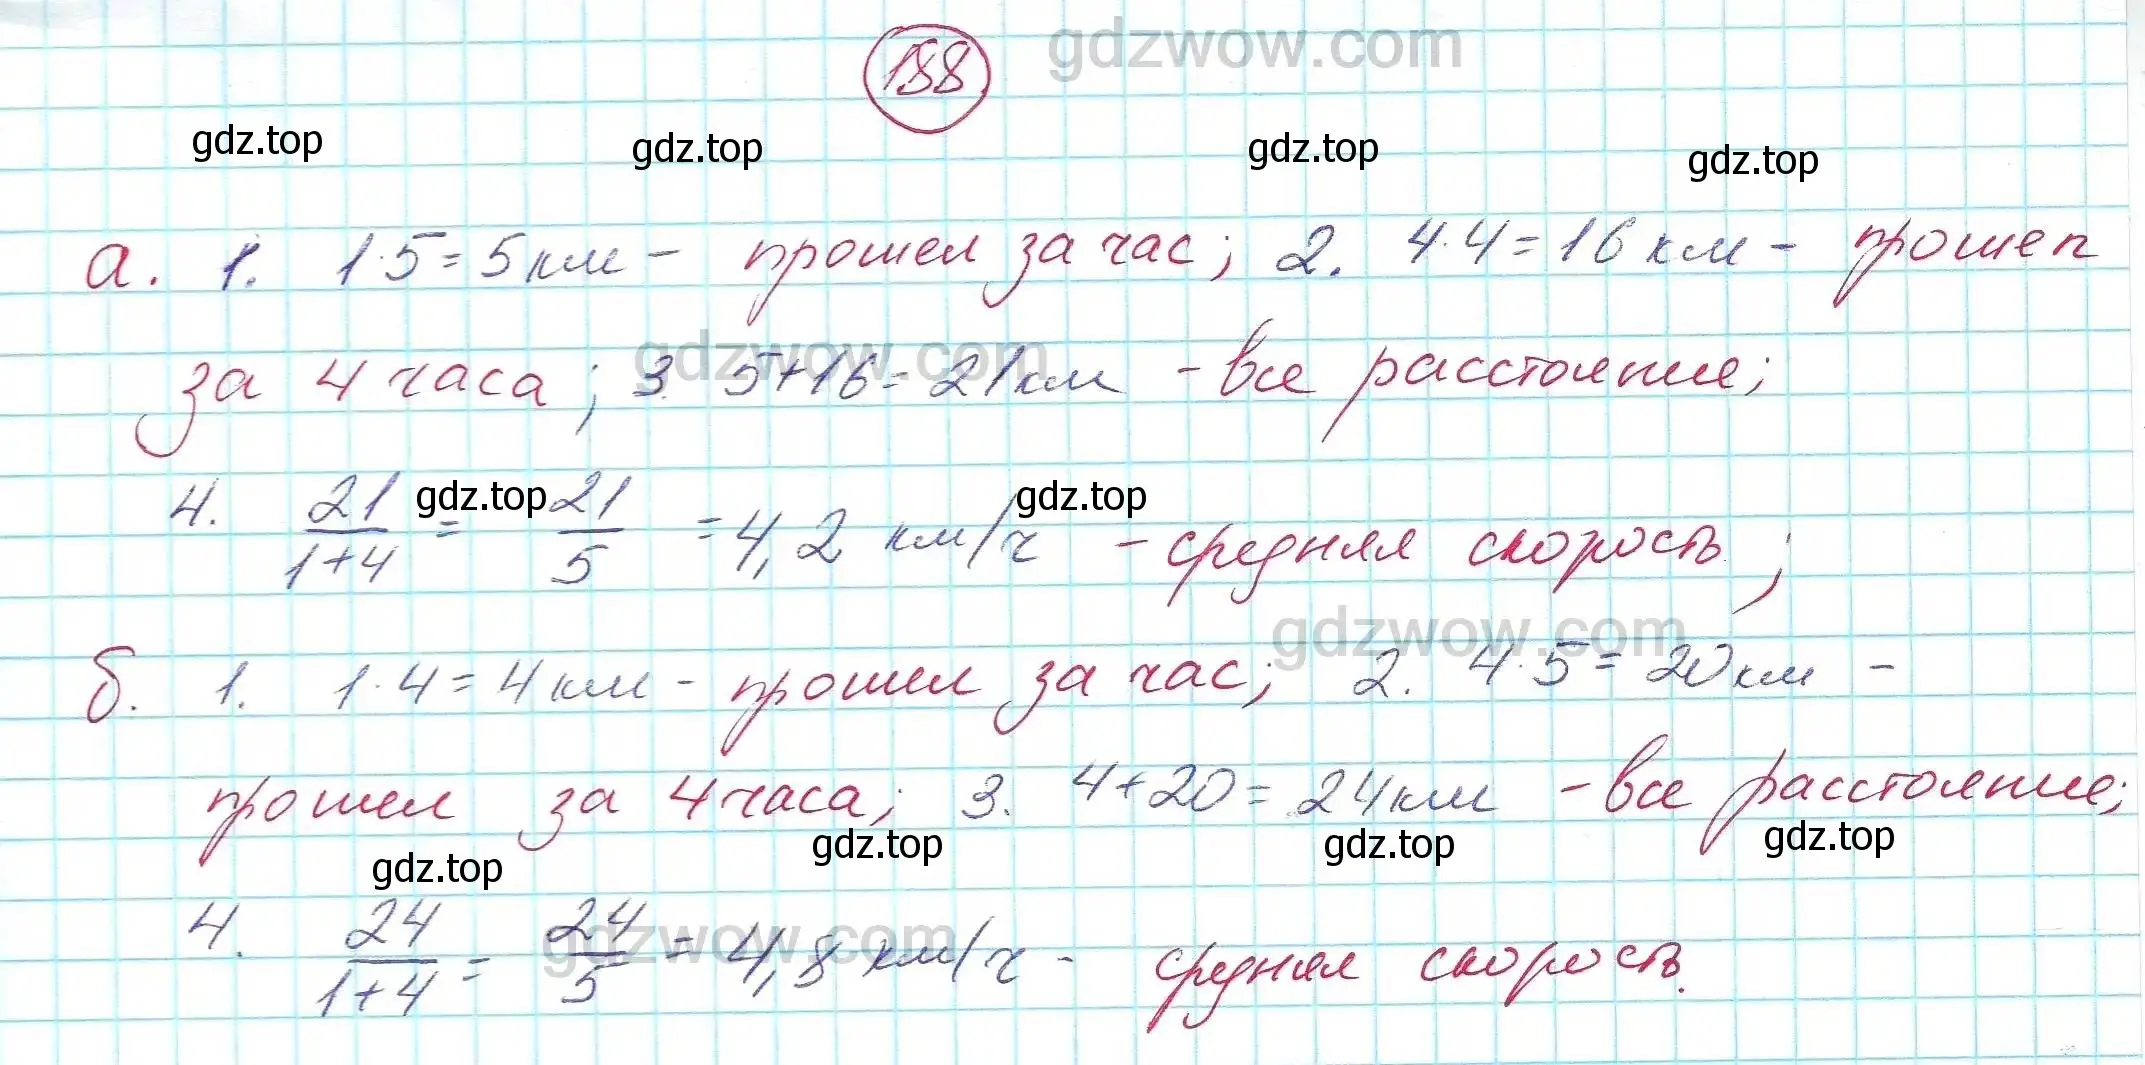 188 gdzwow.com
gdz.top gdz.top gdz.top gdz.top
а. 1. 1·5=5км - прошел за час; 2. 4·4=16км - прошел
gdzwow.com
за 4 часа; 3. 5+16=21км - все расстояние;
4. 21/1+4 = 21/5 = 4,2 км/ч - средняя скорость;
gdz.top gdz.top
gdzwow.com
б. 1. 1·4=4км - прошел за час; 2. 4·5=20км -
прошел за 4 часа; 3. 4+20=24км - все расстояние;
gdz.top gdz.top gdz.top gdz.top
4. 24/1+4 = 24/5 = 4,8 км/ч - средняя скорость.
gdzwow.com